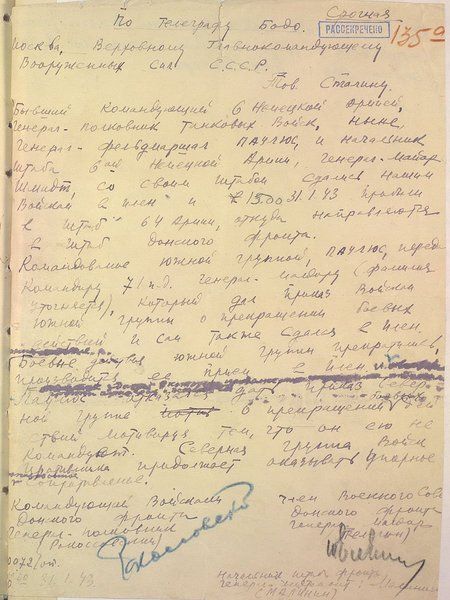 По Телеграфу Бодо.
Срочная
РАССЕКРЕЧЕНО
135
Москва, Верховному Главнокомандующему
Вооруженных Сил С.С.С.Р.
Тов. Сталину.
Бывший Командующий 6 Немецкой Армией,
Генерал-полковник танковых Войск, ныне,
Генерал-фельдмаршал ПАУЛЮС и Начальник
Штаба 6ой Немецкой Армии, генерал-майор
Шмидт, со своим Штабом сдались нашим
Войскам в плен и в 13.00 31.1.43 прибыли
в Штаб 64 Армии, откуда направляются
в Штаб Донского фронта.
Командование южной группой, ПАУЛЮС, передал
Командиру 71 п.д. генерал-майору (фамилия
уточняется), который дал приказ Войскам
южной группы о прекращении боевых
действий и сам также сдался в плен.
Боевые действия южной группы прекратились,
производится ее прием в плен.
Паулюс отказался дать приказ Север-
ной группе о прекращении дей-
ствий мотивируя тем, что он ею не
командует. Северная группа Войск
противника продолжает оказывать упорное
сопротивление.
Командующий Войсками
Донского фронта
генерал-полковник
(Рокоссовский)
Рокоссовский
Член Военного Совета
Донского фронта
генерал-майор
(Телегин)
0072/оп.
31.1.43.
Начальник штаба фронта
генерал-лейтенант
(МАЛИНИН)